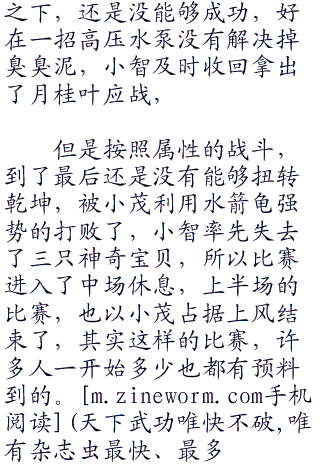 之下，还是没能够成功，好
在一招高压水泵没有解决掉
臭臭泥，小智及时收回拿出
了月桂叶应战，
但是按照属性的战斗，
到了最后还是没有能够扭转
乾坤，被小茂利用水箭龟强
势的打败了，小智率先失去
了三只神奇宝贝，所以比赛
进入了中场休息，上半场的
比赛，也以小茂占据上风结
束了，其实这样的比赛，许
多人一开始多少也都有预料
到的。[m.zineworm.com手机
阅读](天下武功唯快不破,唯
有杂志虫最快、最多